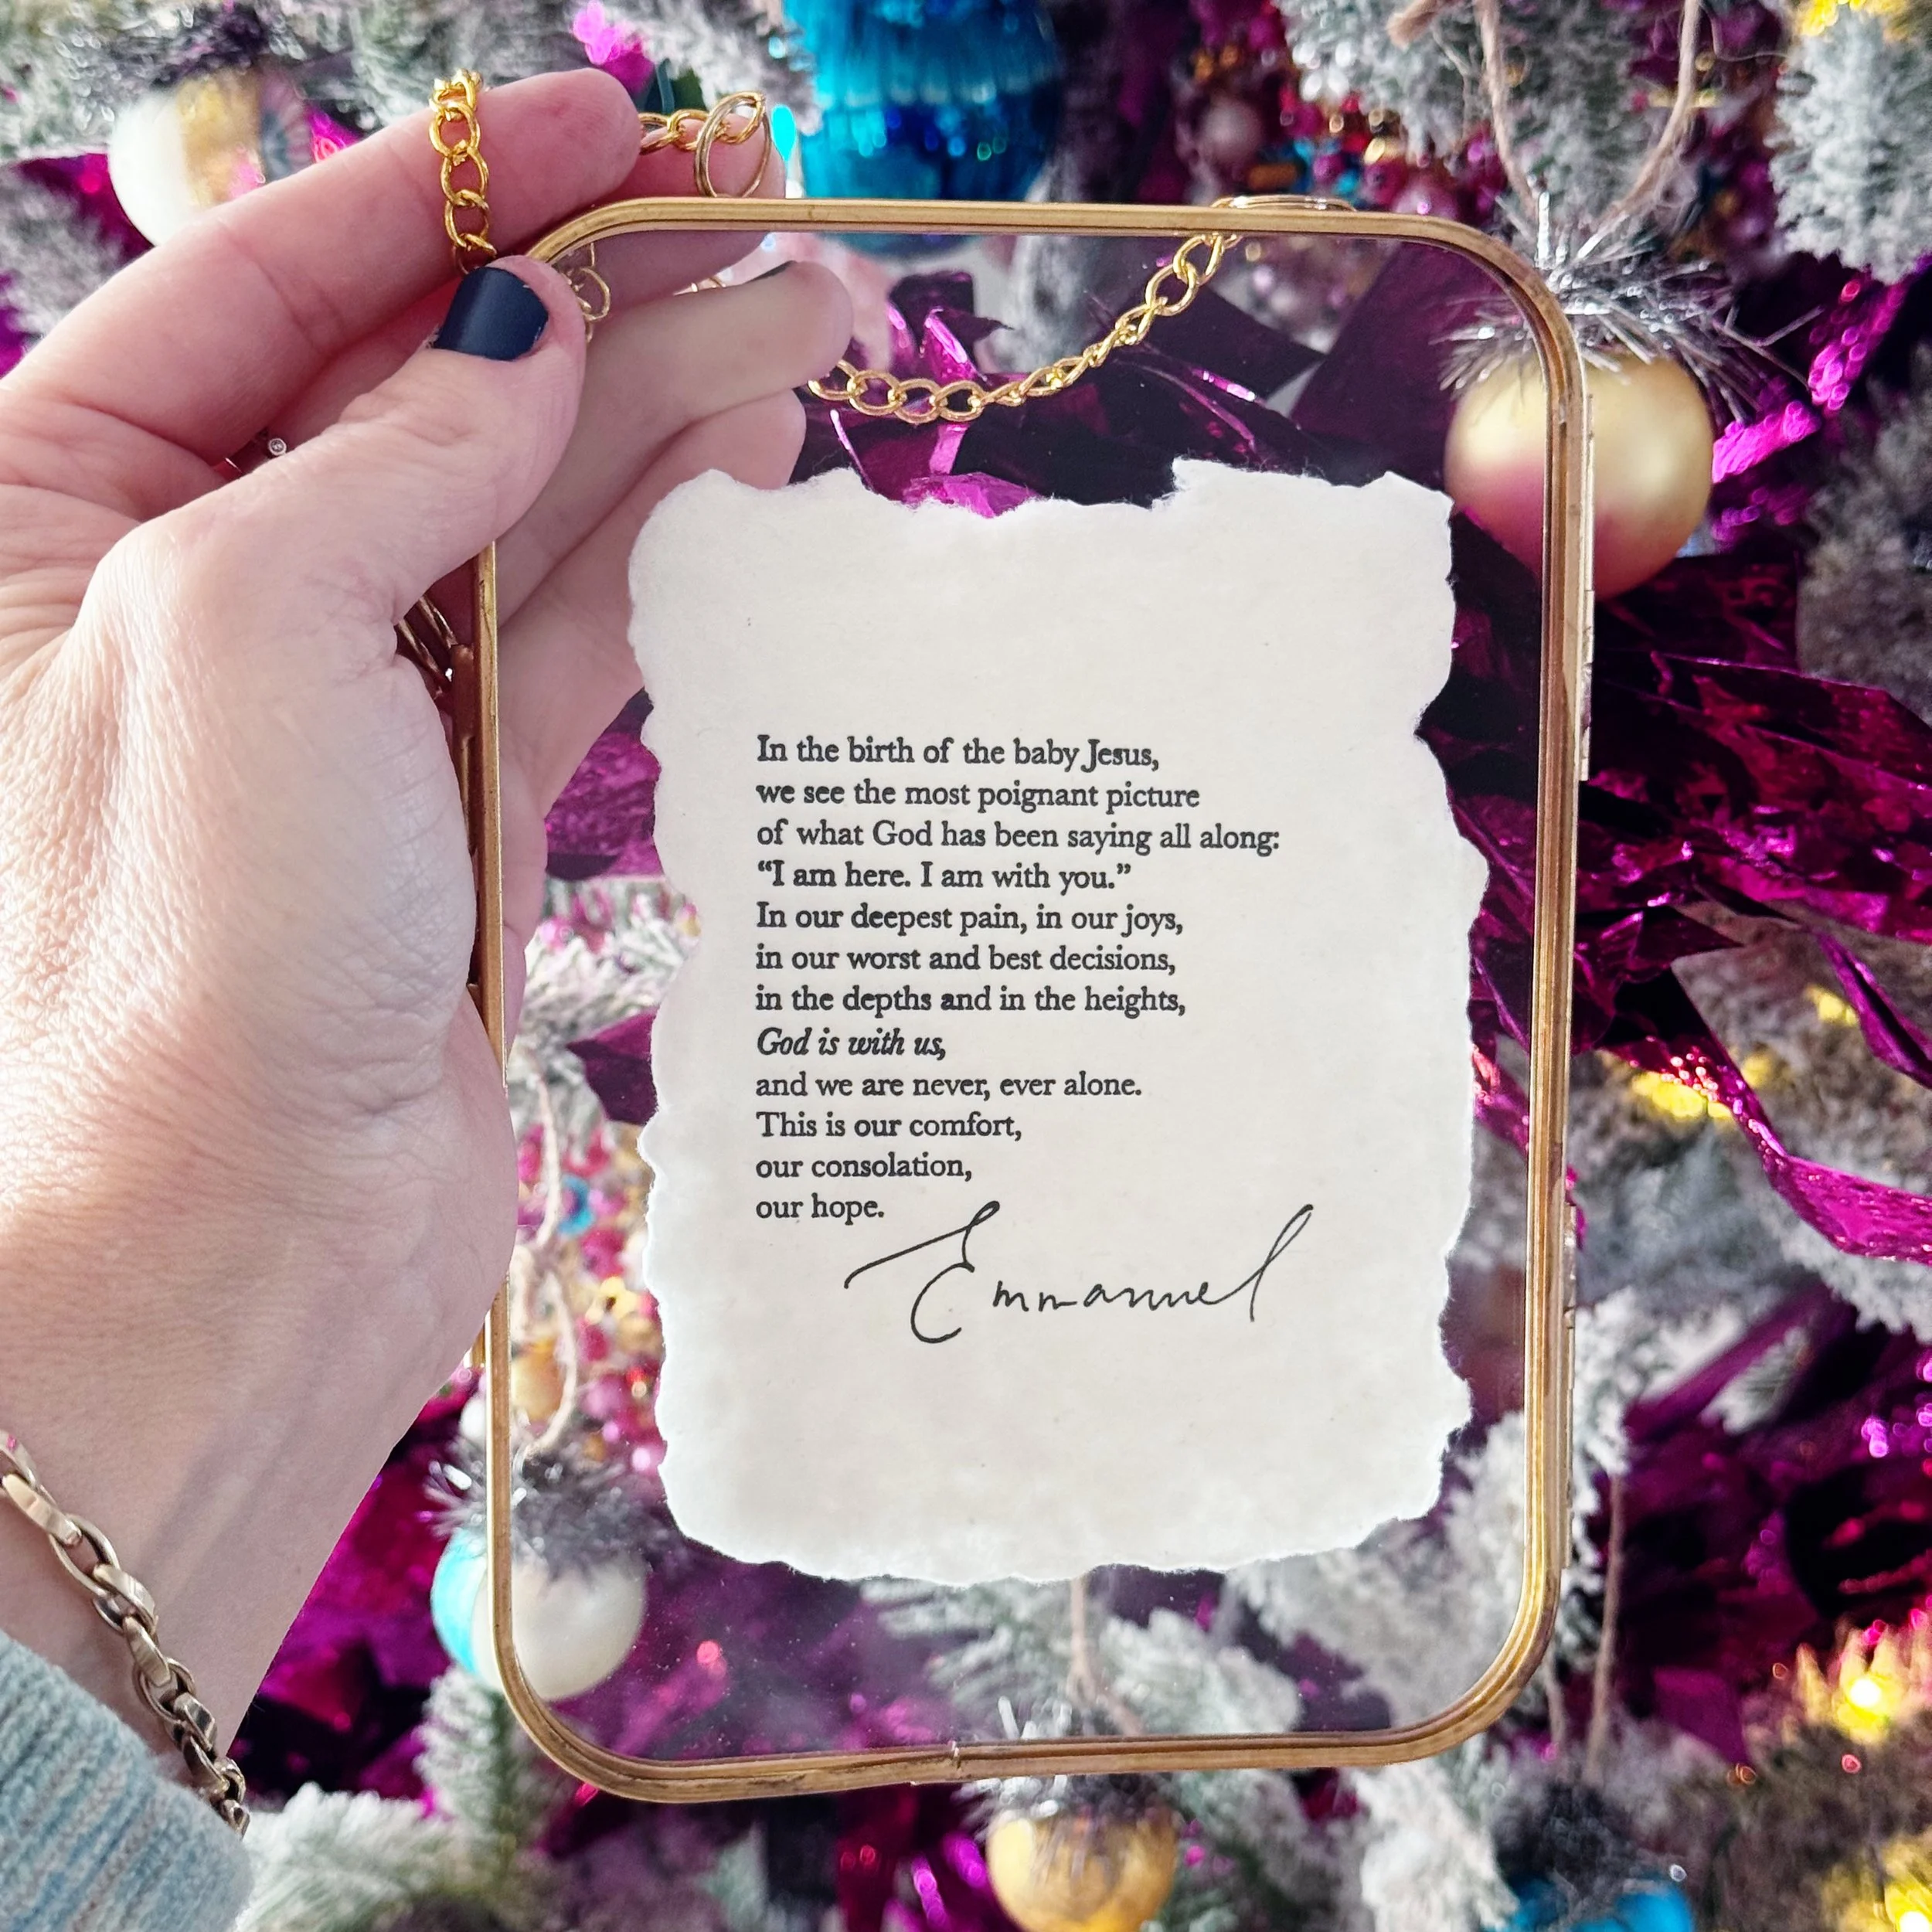 In the birth of the baby Jesus,
we see the most poignant picture
of what God has been saying all along:
“I am here. I am with you.”
In our deepest pain, in our joys,
in our worst and best decisions,
in the depths and in the heights,
God is with us,
and we are never, ever alone.
This is our comfort,
our consolation,
our hope.
Emmanuel